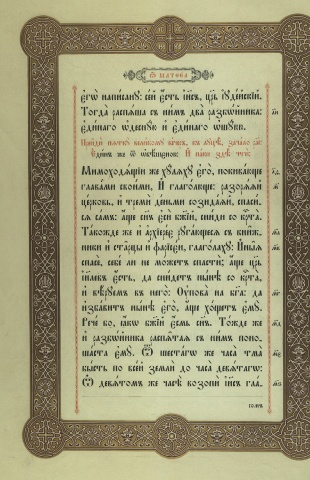 Ѿ МАТѲЕА
єгѡ̀ написанꙋ: се́й є҆́сть і҆и҃съ, цр҃ь і҆ꙋде́йскїй.
Тогда̀ распѧ́ша съ ни́мъ два̀ разбѡ́йника:
є҆ди́наго ѡ҆деснꙋ́ю и҆ є҆ди́наго ѡ҆шꙋ́юю.
Є҆ди́нъ же ѿ ѡ҆бѣ́шеною. И҆ па́ки здѣ̀ чтѝ:
Мимоходѧ́щїи же хꙋ́лѧхꙋ є҆го̀, покива́юще
глава́ми свои́ми, И҆ глаго́люще: разорѧ́ѧй
це́рковь, и҆ тремѝ де́ньми созида́ѧй, спаси́-
сѧ са́мъ: а҆́ще сн҃ъ є҆сѝ бж҃їй, сни́ди со крⷭ҇та̀.
Та́кожде же и҆ а҆рхїере́є рꙋга́ющесѧ съ кни́ж-
ники и҆ ста́рцы и҆ фарїсє́и, глаго́лахꙋ: И҆ны̑ѧ
спасѐ, себе́ ли не мо́жетъ спастѝ; а҆́ще цр҃ь
і҆и҃левъ є҆́сть, да сни́детъ нн҃ѣ со крⷭ҇та̀,
и҆ вѣ́рꙋемъ въ него̀: Оу҆пова̀ на бг҃а: да
и҆зба́витъ нн҃ѣ є҆го̀, а҆́ще хо́щетъ є҆мꙋ̀.
Рече́ бо, ꙗ҆́кѡ бж҃їй є҆́смь сн҃ъ. То́жде же
и҆ разбѡ́йника распѧ̑таѧ съ ни́мъ поно-
ша́ста є҆мꙋ̀. Ѿ шеста́гѡ же часа̀ тма̀
бы́сть по все́й землѝ до часа̀ девѧ́тагѡ:
Ѡ҆ девѧ́томъ же часѣ̀ возопѝ і҆и҃съ гла́-